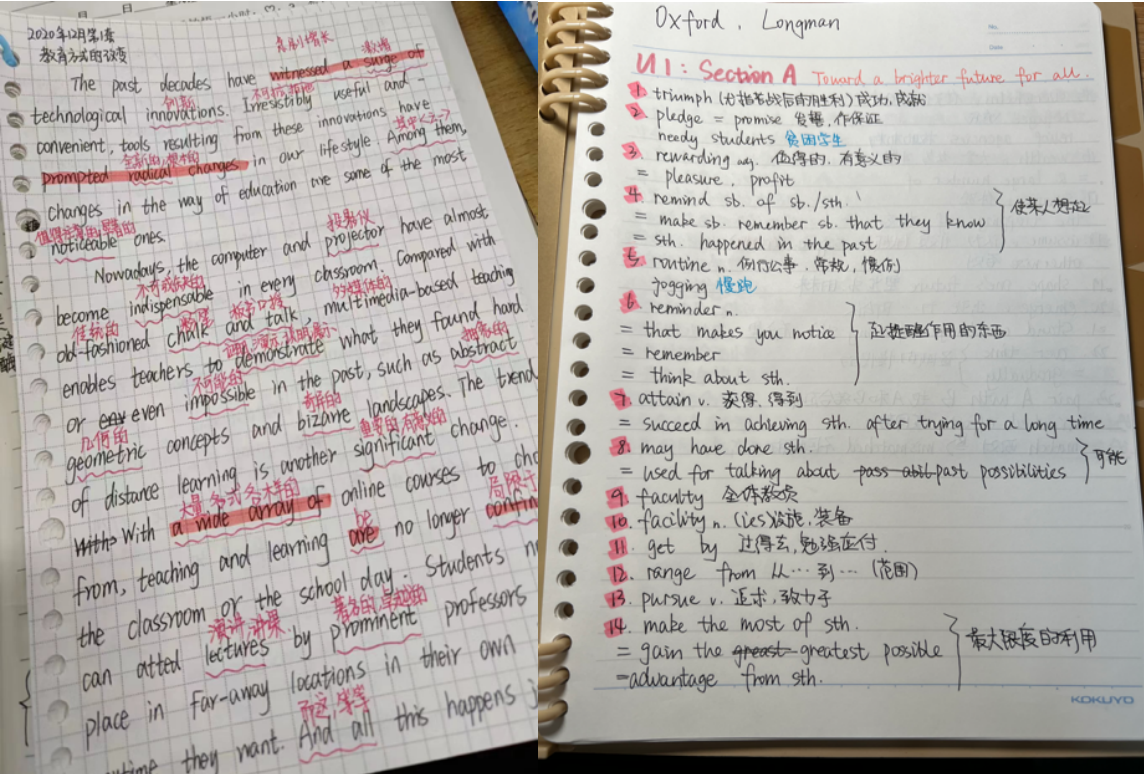 2020年12月第1套
教育方式的改变
急剧增长 激增
The past decades have witnessed a surge of
创新 不可抗拒地
technological innovations. Irresistibly useful and
convenient, tools resulting from these innovations have
全新的,根本的 其中之一
prompted radical changes in our lifestyle. Among them,
changes in the way of education are some of the most
值得注意的,显著的
noticeable ones.
投影仪
Nowadays, the computer and projector have almost
不可或缺的
become indispensable in every classroom. Compared with
传统的 板书口授 多媒体的
old-fashioned chalk and talk, multimedia-based teaching
抽象的
enables teachers to demonstrate what they found hard
不可能的
or even impossible in the past, such as abstract
几何的 奇异的
geometric concepts and bizarre landscapes. The trend
重要的
of distance learning is another significant change.
大量,各式各样的 局限于
With With a wide array of online courses to cho
be
from, teaching and learning are no longer confin
the classroom or the school day. Students n
演讲,讲课 著名的,卓越的
can atted lectures by prominent professors
place in far-away locations in their own
time they want. And all this happens i
Oxford. Longman
No.
Date
U1: Section A Toward a brighter future for all.
1. triumph (尤指苦战后的胜利) 成功,成就
2. pledge = promise 发誓,作保证
needy students 贫困学生
3. rewarding adj. 值得的,有意义的
= pleasure. profit
4. remind sb. of sb./sth.
= make sb. remember sb. that they know 使某人想起
= sth. happened in the past
5. routine n. 例行公事,常规,惯例
jogging 慢跑
6. reminder n.
= that makes you notice 起提醒作用的东西
= remember
= think about sth.
7. attain v. 获得,得到
= succeed in achieving sth. after trying for a long time
8. may have done sth.
= used for talking about past possibilities 可能
9. faculty 全体教员
10. facility n. (ies)设施,装备
11. get by 过得去,勉强应付.
12. range from 从…到… (范围)
13. pursue v. 追求,致力于
14. make the most of sth.
= gain the greast greatest possible 最大限度的利用
=advantage from sth.
KOKUYO